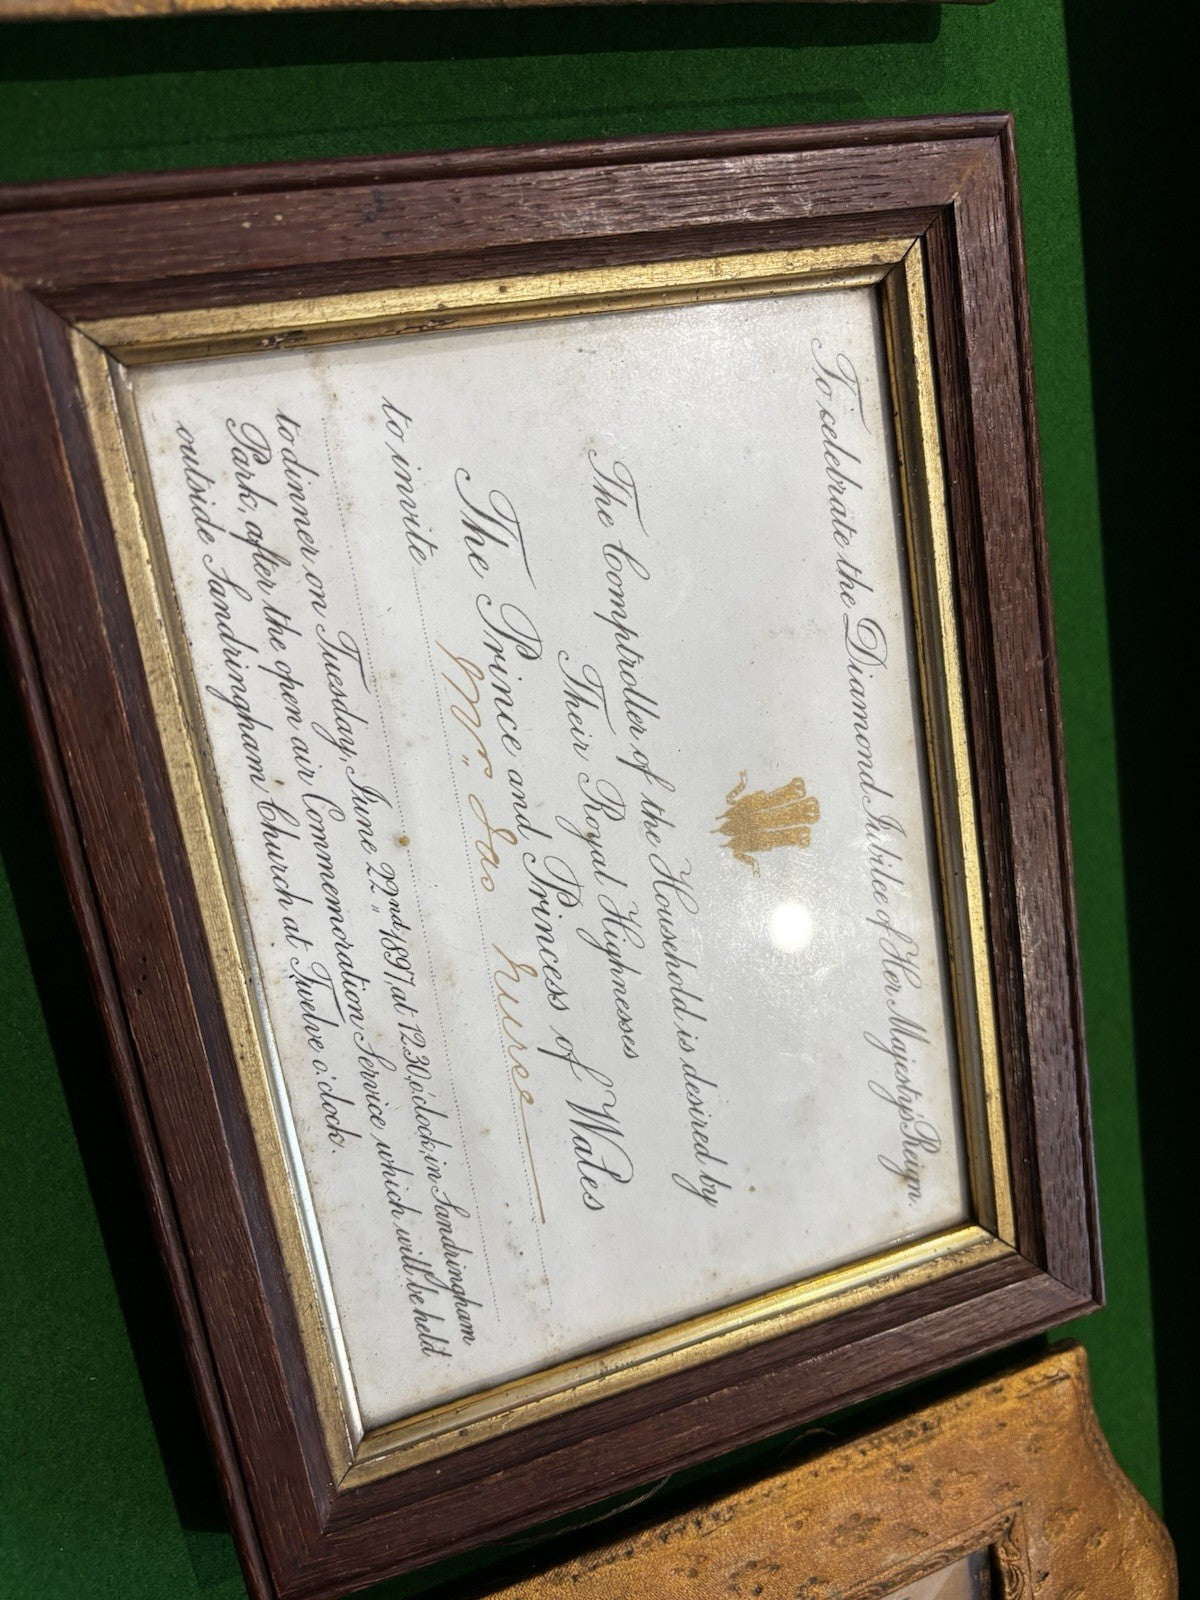 To celebrate the Diamond Jubilee of Her Majesty's Reign.
The Comptroller of the Household is desired by
Their Royal Highnesses
The Prince and Princess of Wales
to invite
Mr. Jas
to dinner on Tuesday, June 22nd, 1897, at 12.30, o'clock, in Sandringham
Park, after the open air Commemoration Service which will be held
outside Sandringham Church at Twelve o'clock.